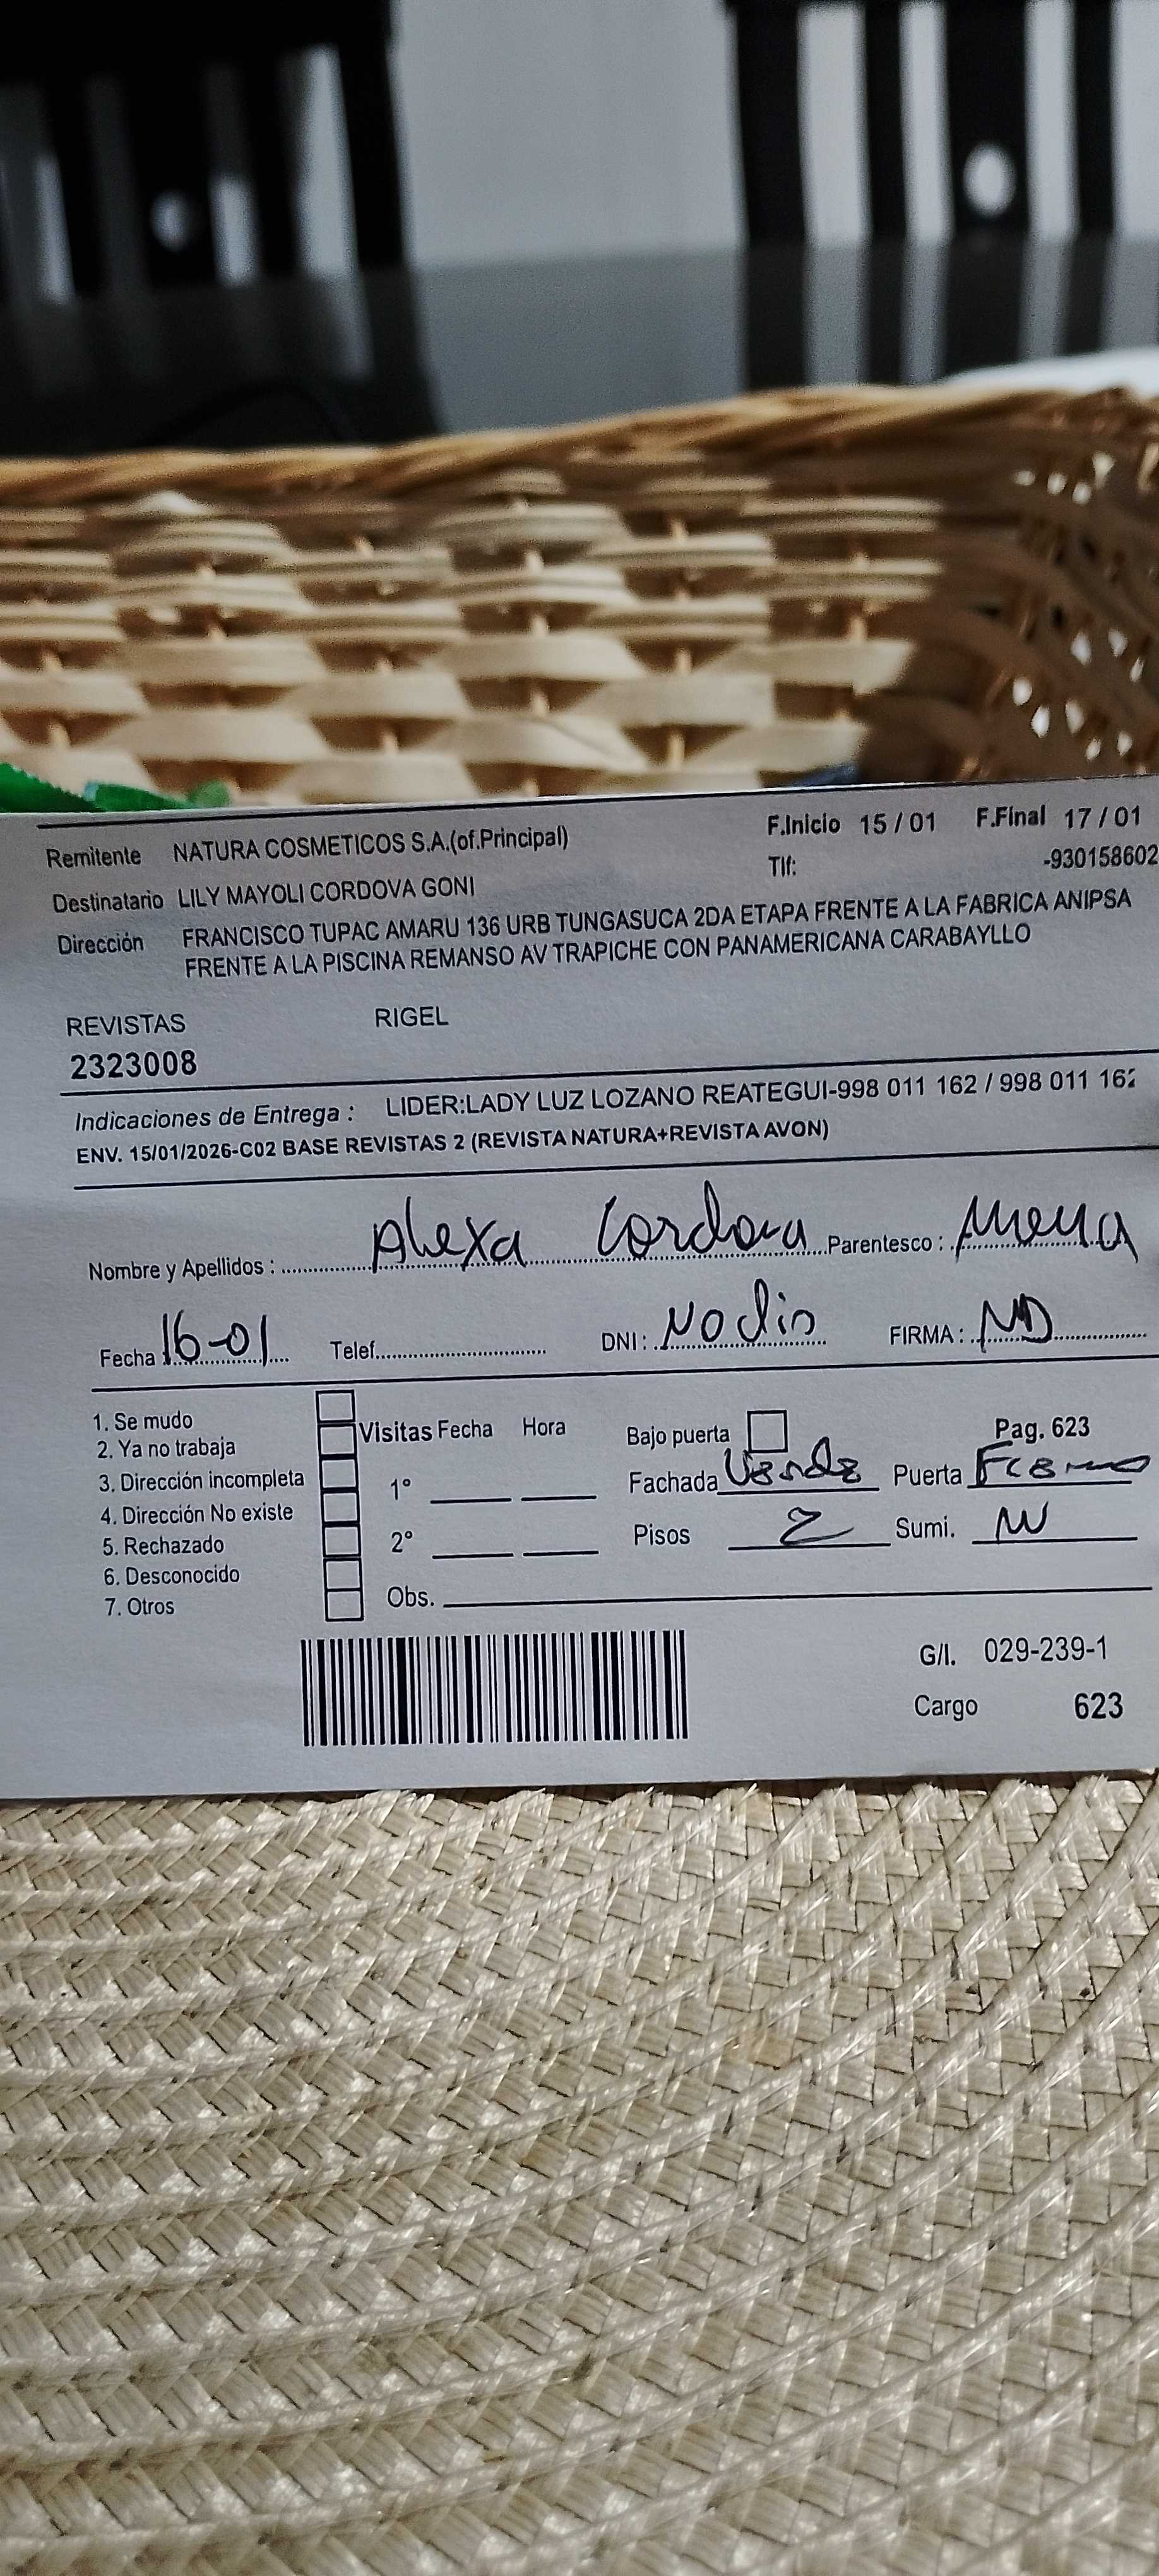 Remitente NATURA COSMETICOS S.A.(of.Principal) F.Inicio 15 / 01 F.Final 17 / 01
Destinatario LILY MAYOLI CORDOVA GONI Tlf: -930158602
Dirección FRANCISCO TUPAC AMARU 136 URB TUNGASUCA 2DA ETAPA FRENTE A LA FABRICA ANIPSA
FRENTE A LA PISCINA REMANSO AV TRAPICHE CON PANAMERICANA CARABAYLLO
REVISTAS RIGEL
2323008
Indicaciones de Entrega : LIDER:LADY LUZ LOZANO REATEGUI-998 011 162 / 998 011 162
ENV. 15/01/2026-C02 BASE REVISTAS 2 (REVISTA NATURA+REVISTA AVON)
Nombre y Apellidos : Alexa Cordova Parentesco :
Fecha 16-01 Telef. DNI : No dio FIRMA : ND
1. Se mudo
2. Ya no trabaja Visitas Fecha Hora Bajo puerta Pag. 623
3. Dirección incompleta 1° Fachada Verde Puerta Fierro
4. Dirección No existe
5. Rechazado 2° Pisos 2 Sumi.
6. Desconocido
7. Otros Obs.
G/I. 029-239-1
Cargo 623